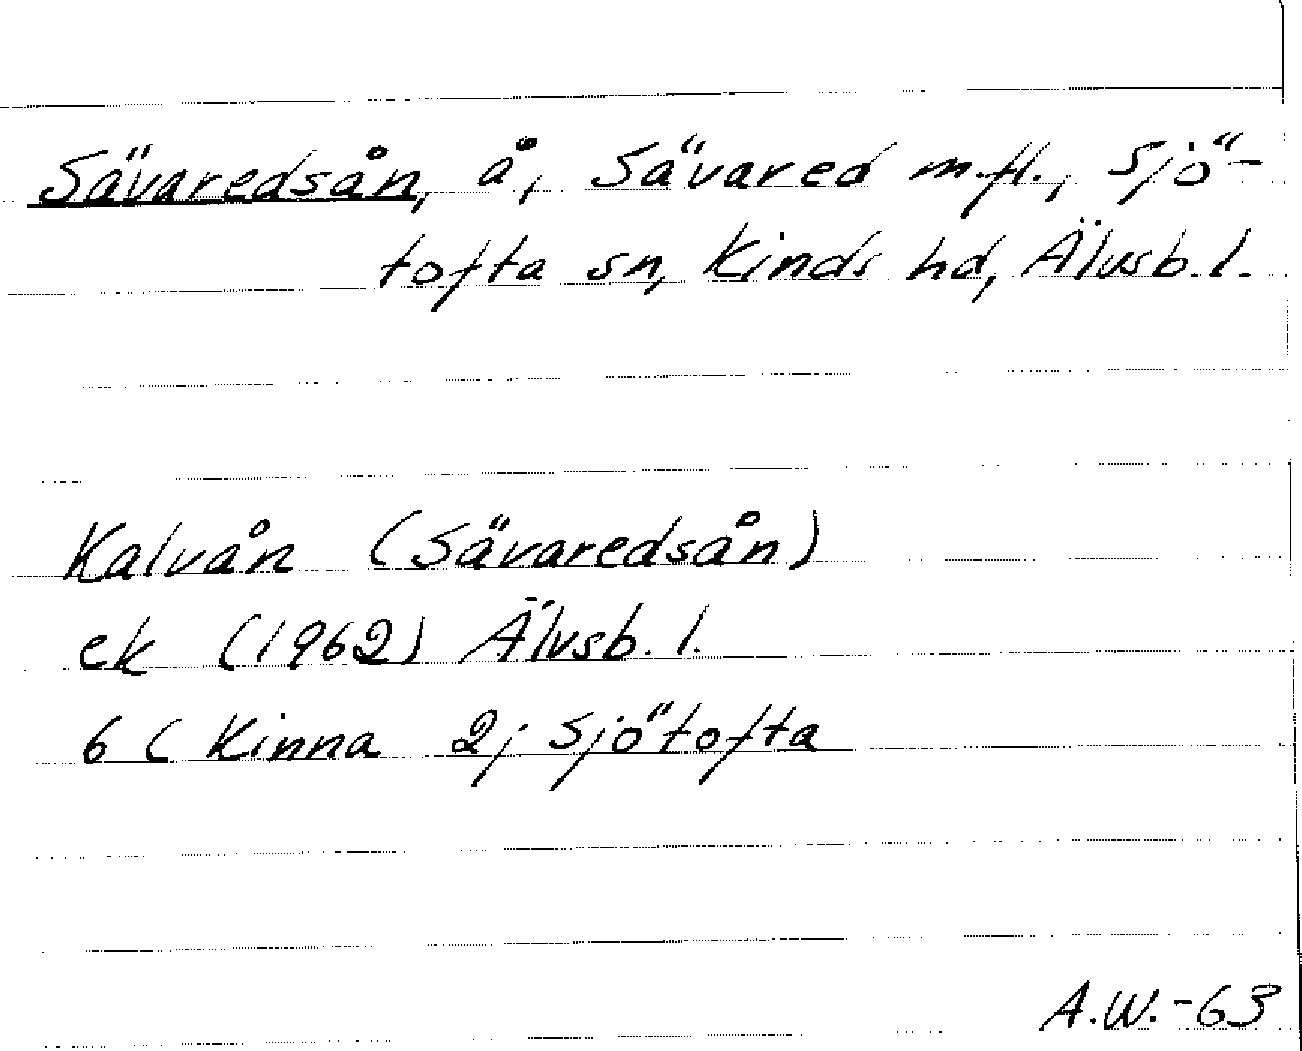 Sävaredsån, å, Sävared m.fl., Sjö-
tofta sn, Kinds hd, Älvsb. l.
Kalvån (Sävaredsån)
ek (1962) Älvsb. l.
6 C Kinna 2j Sjötofta
A.W.-63